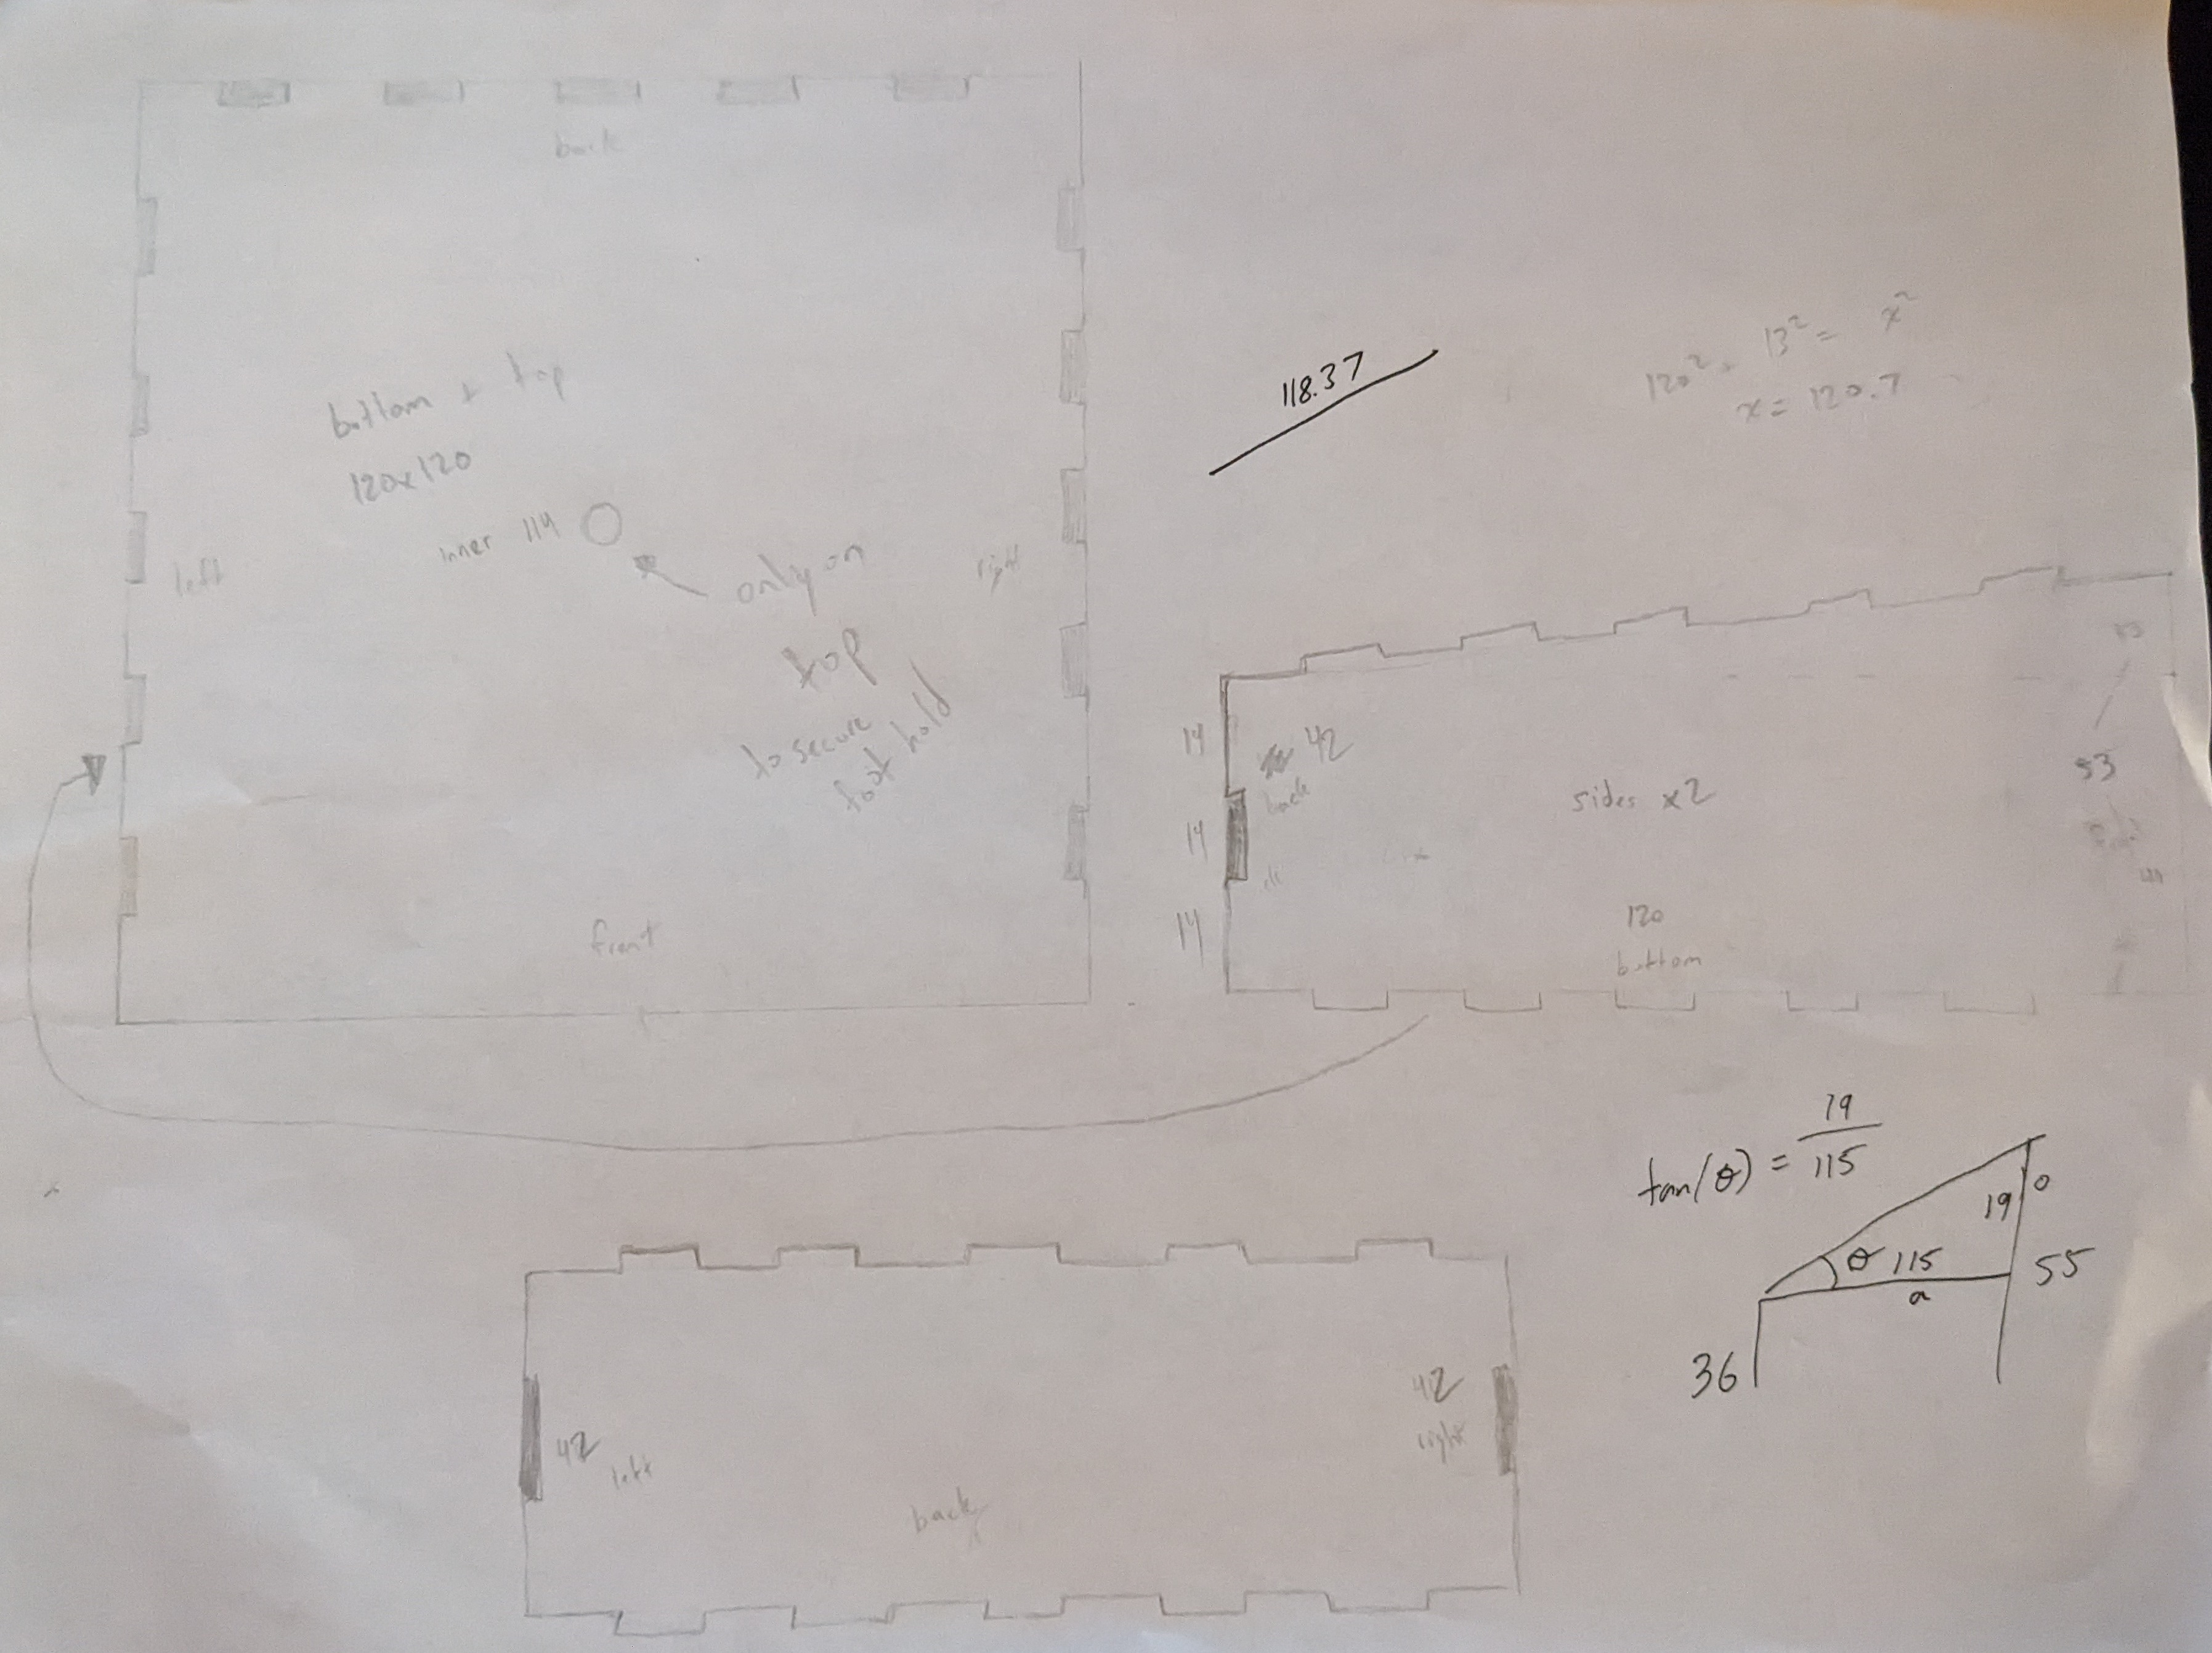 back
bottom + top
120x120
inner 114
only on
top
to secure
foot hold
left
right
front
118.37
120² + 13² = x²
x = 120.7
14
14
14
42
back
sides x2
53
120
bottom
tan(θ) = 19/115
19
o
θ 115
a
55
36
42
left
42
right
back